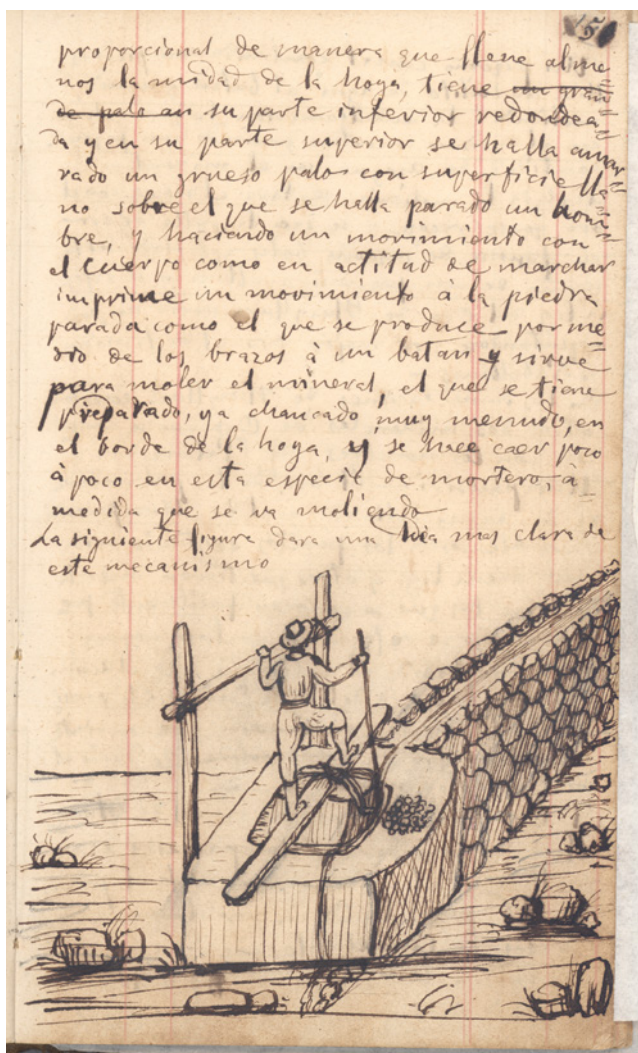 150
proporcional de manera que llene al me=
nos la mitad de la hoya, tiene un gran=
de palo an su parte inferior redondea=
da y en su parte superior se halla amar=
rado un grueso palo con superficie lla=
no sobre el que se halla parado un hom=
bre, y haciendo un movimiento con
el cuerpo como en actitud de marchar
imprime un movimiento á la piedra
parada como el que se produce por me=
dio de los brazos á un batan y sirve
para moler el mineral, el que se tiene
preparado, ya chancado muy menudo, en
el borde de la hoya, y se hace caer poco
á poco en esta especie de mortero, á
medida que se va moliendo
La siguiente figura dara una idea mas clara de
este mecanismo